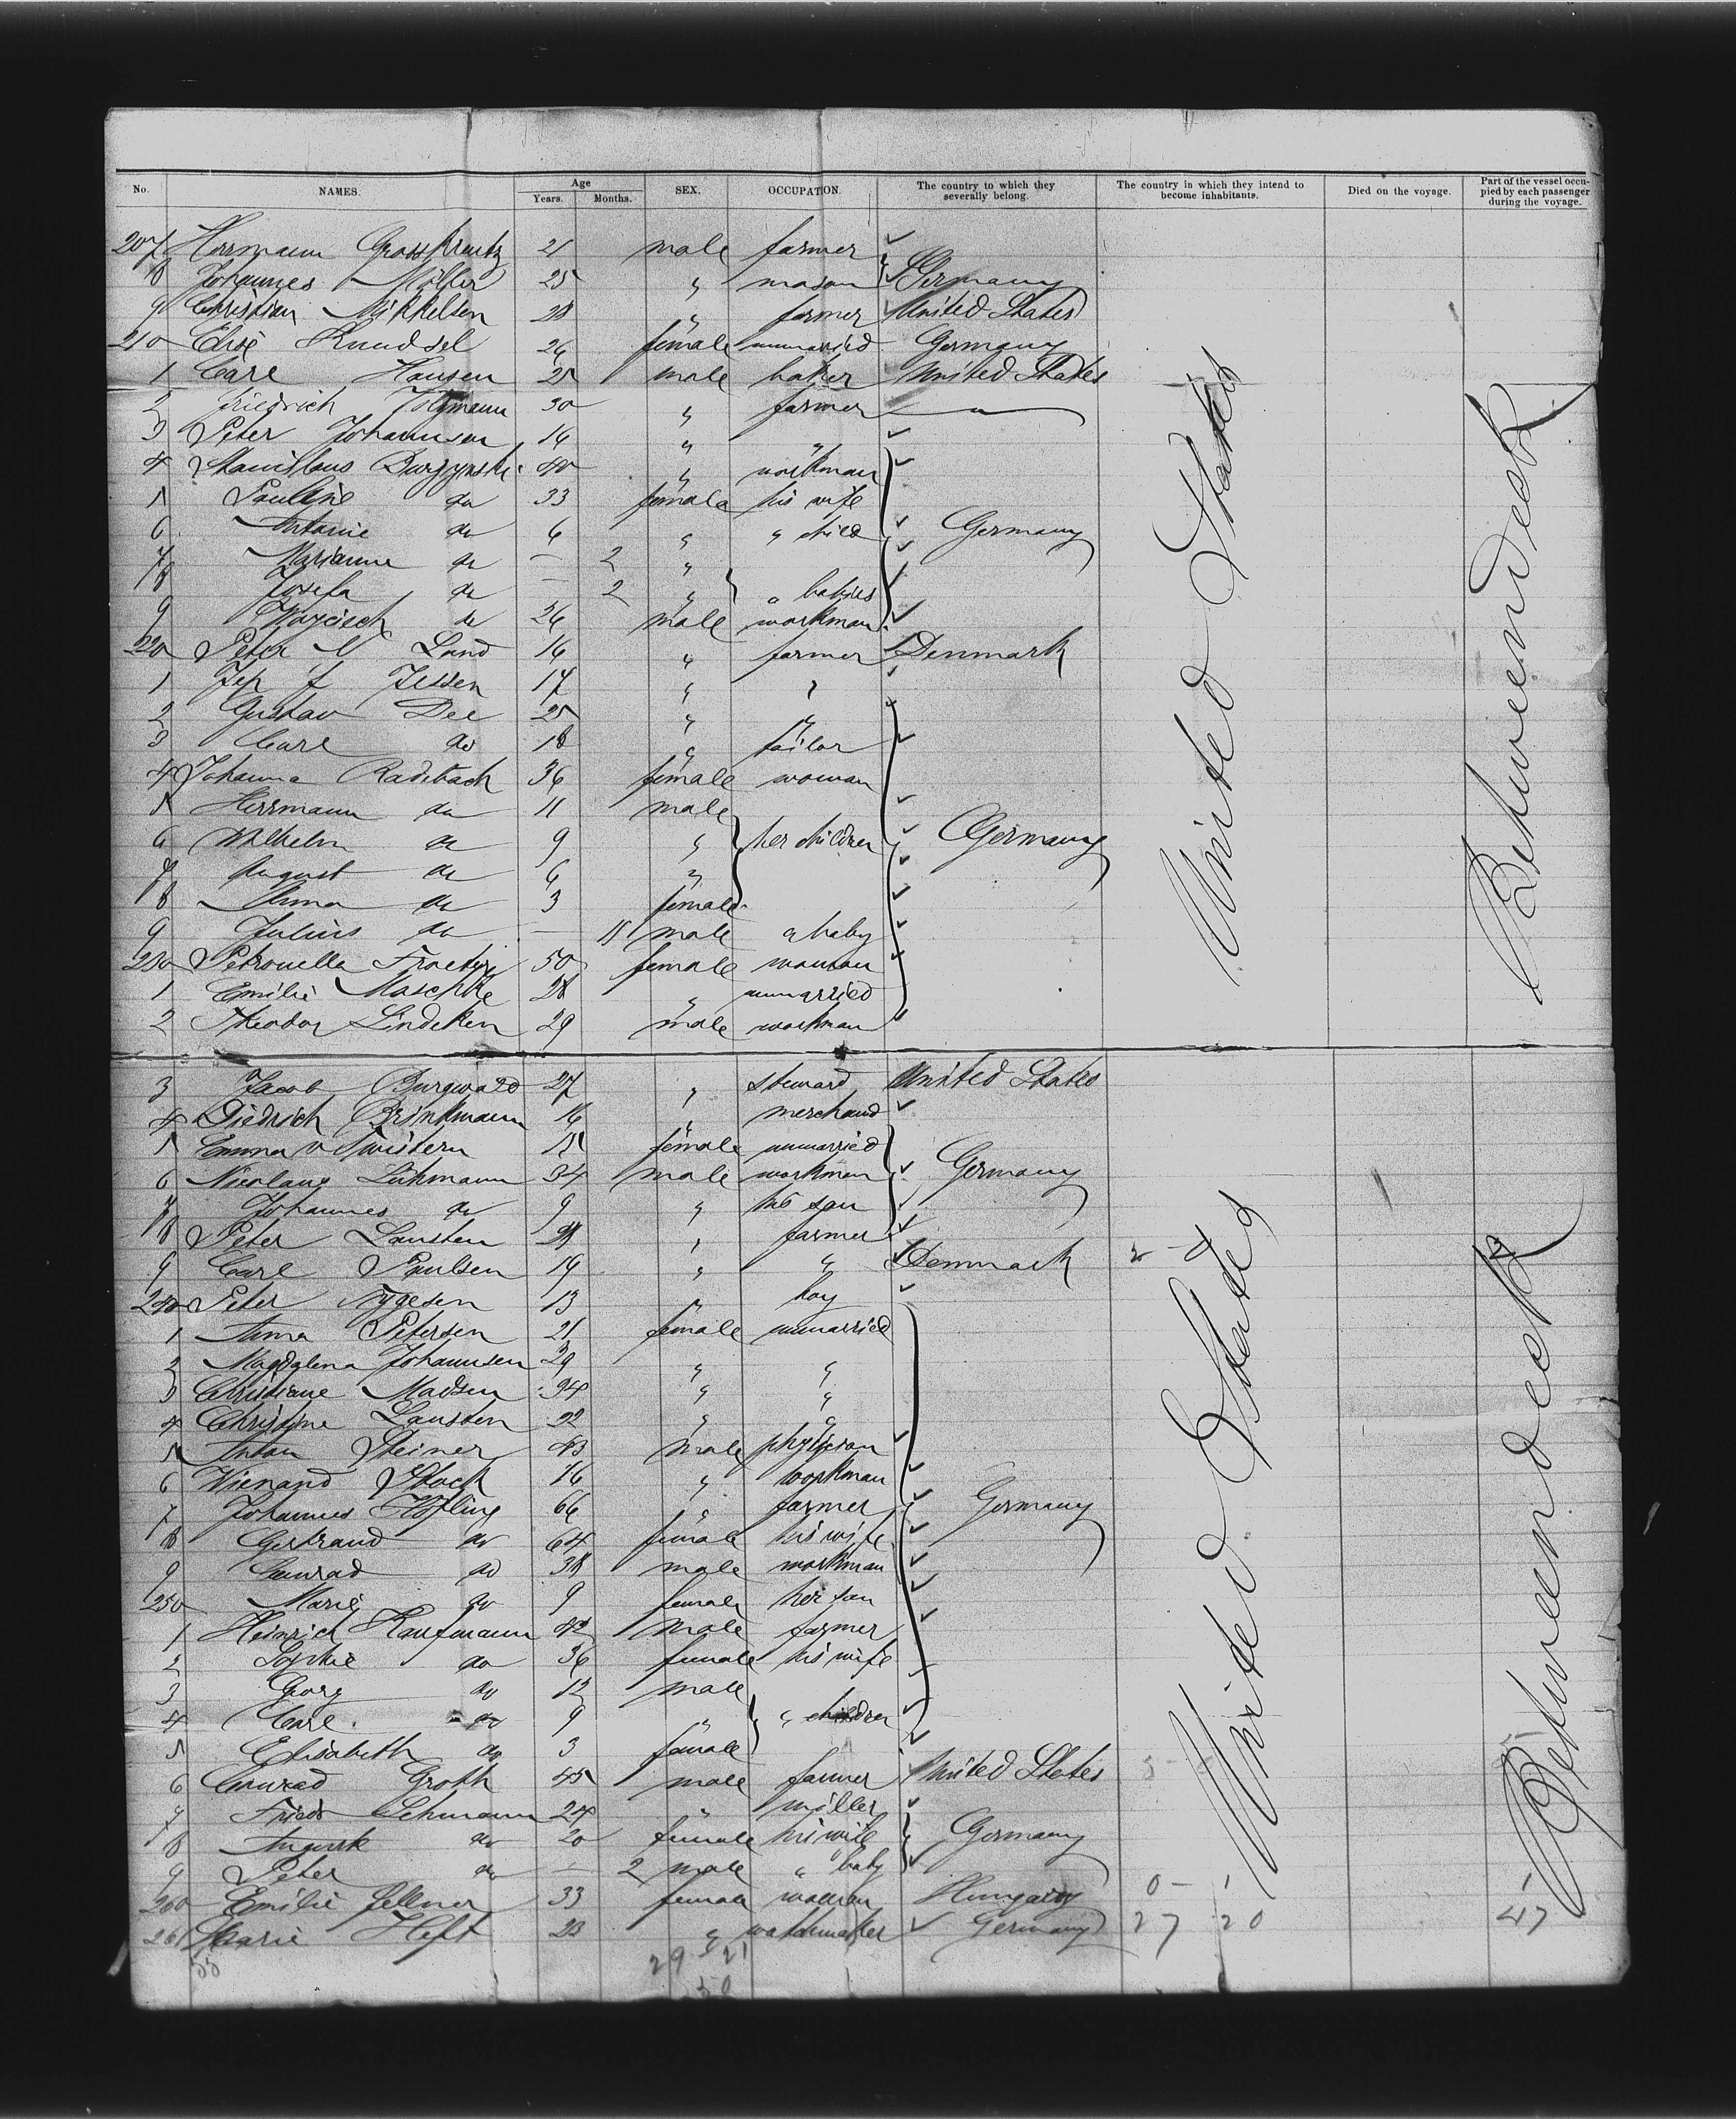 No. NAMES. Age Years. Months. SEX. OCCUPATION. The country to which they severally belong. The country in which they intend to become inhabitants. Died on the voyage. Part of the vessel occupied by each passenger during the voyage.
207 Herrmann 21 male farmer
8 Johannes Möller 25 " mason Germany
9 Christian Mikkelsen 28 " farmer United States
210 Elise Knudsel 26 female unmarried Germany
1 Carl Hansen 25 male baker United States
2 Friedrich 30 " farmer —
3 Peter Johannsen 16 " "
4 Stanislaus 40 " workman
5 Pauline do 33 female his wife
6 Antonie do 6 " " child Germany
7 Marianne do — 2 "
8 Josefa do — 2 " " babies
9 do 26 male workman
220 Peter Lund 16 " farmer Denmark
1 Jep J Jessen 17 " "
2 Gustav Dee 25 " "
3 Carl do 18 " tailor
4 Johanna Radebach 36 female woman
5 Herrmann do 11 male
6 Wilhelm do 9 " her children Germany
7 August do 6 "
8 Anna do 3 female
9 Julius do — 11 male a baby
230 Petronella 50 female woman
1 Emilie Maschke 28 " unmarried
2 Theodor Lindeken 29 male workman
United States
Betweendeck
3 Jacob Burgwald 27 " steward United States
4 Diedrich Brinkmann 16 " merchand
5 Emma v Twistern 18 female unmarried
6 Nicolaus Lühmann 34 male workman Germany
7 Johannes do 9 " his son
8 Peter Lausten 28 " farmer
9 Carl Paulsen 19 " " Denmark
240 Peter Nygesen 13 " boy
1 Anna Petersen 21 female unmarried
2 Magdalena Johannsen 29 " "
3 Christiane Madsen 24 " "
4 Christine Lausten 22 " "
5 Anton Steiner 43 male physician
6 Wienand Stock 16 " workman
7 Johannes Höfling 66 " farmer Germany
8 Gertraud do 64 female his wife
9 Conrad do 38 male workman
250 Marie do 9 female her son
1 Heinrich Kaufmann 42 male farmer
2 Sophie do 36 female his wife
3 Georg do 12 male
4 Carl do 9 " " children
5 Elisabeth do 3 female
6 Conrad Groth 45 male farmer United States
7 Friedr Lehmann 24 " miller
8 Auguste do 20 female his wife Germany
9 Peter do — 2 male " baby
260 Emilie Fellner 33 female woman Hungary 0 - 1 1
261 Marie Heft 23 " watchmaker Germany 27 20 47
United States
Betweendeck
55
29 21
50